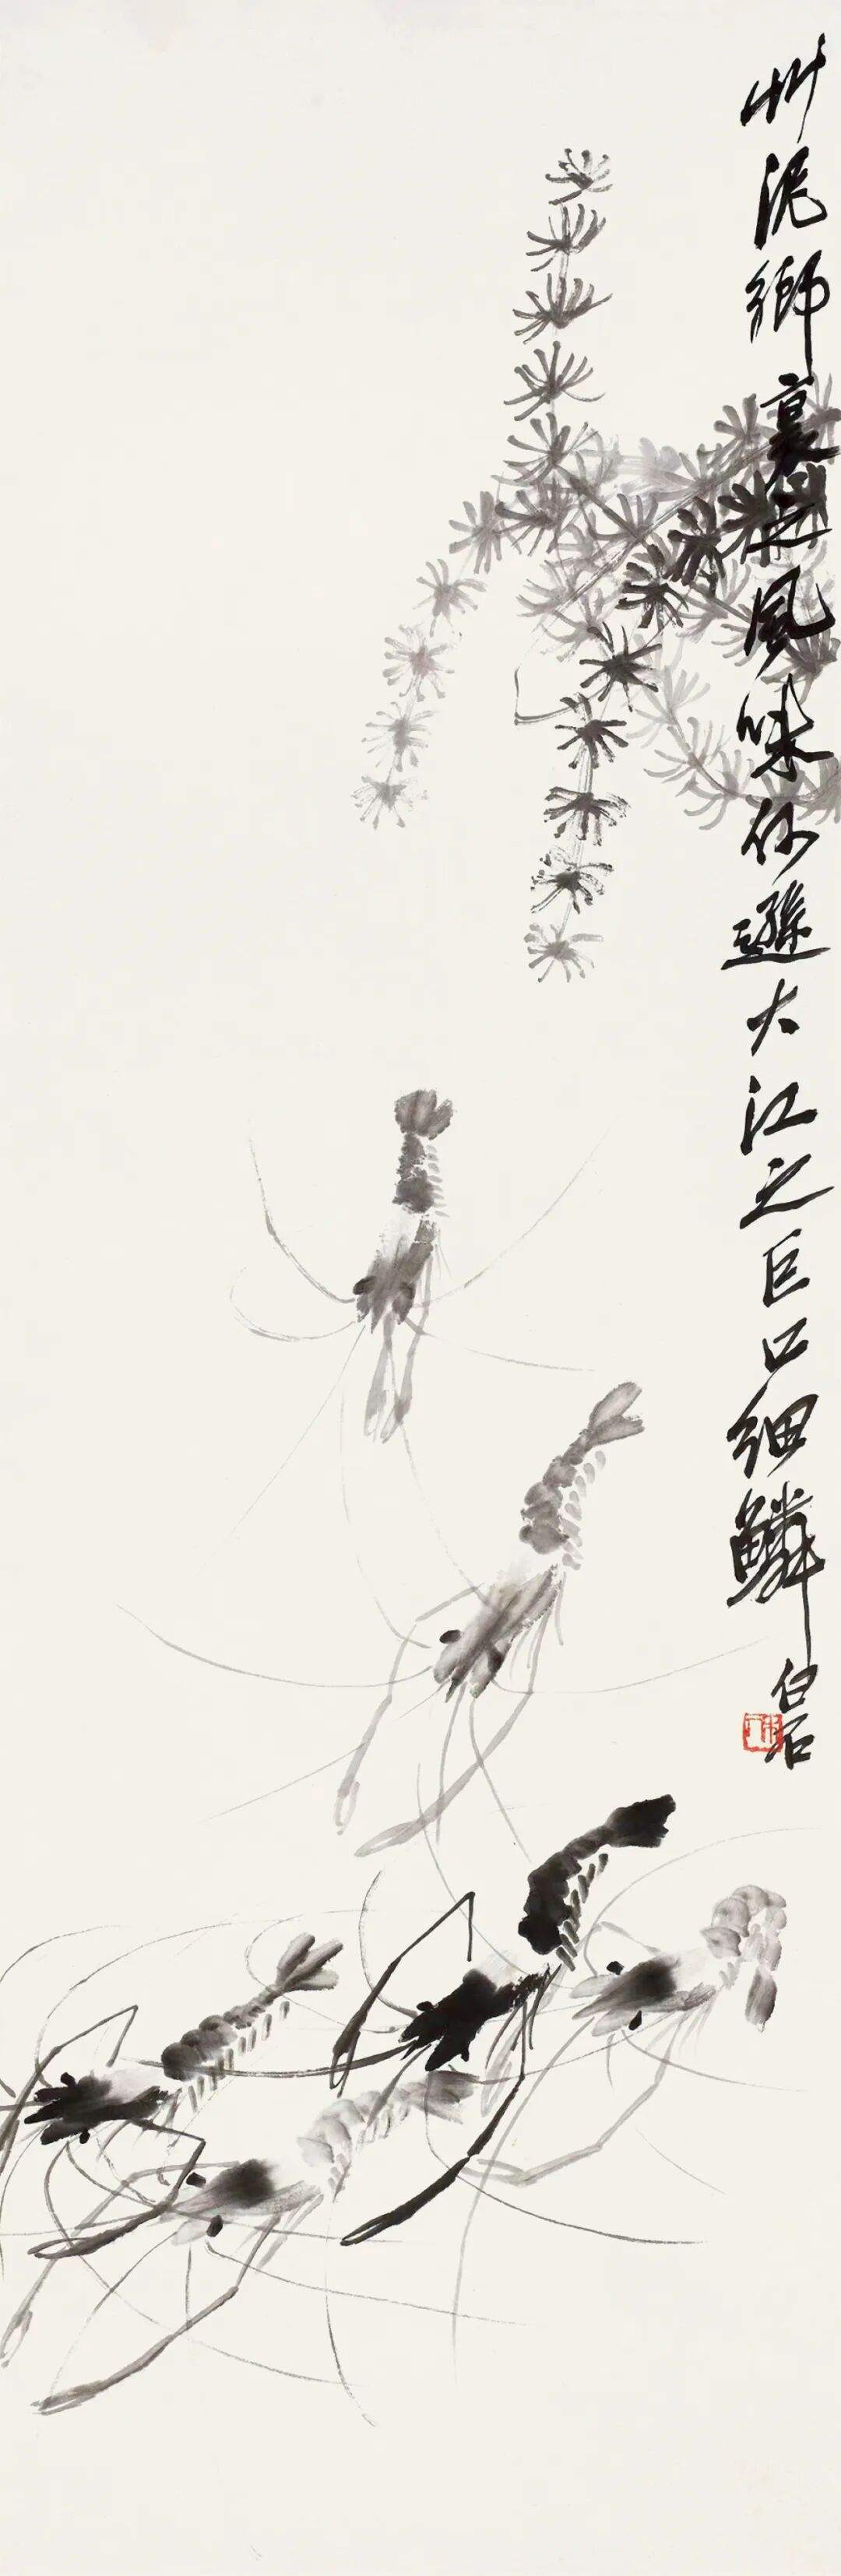 艸泥鄉裏之風味何遜大江之巨口細鱗
白石